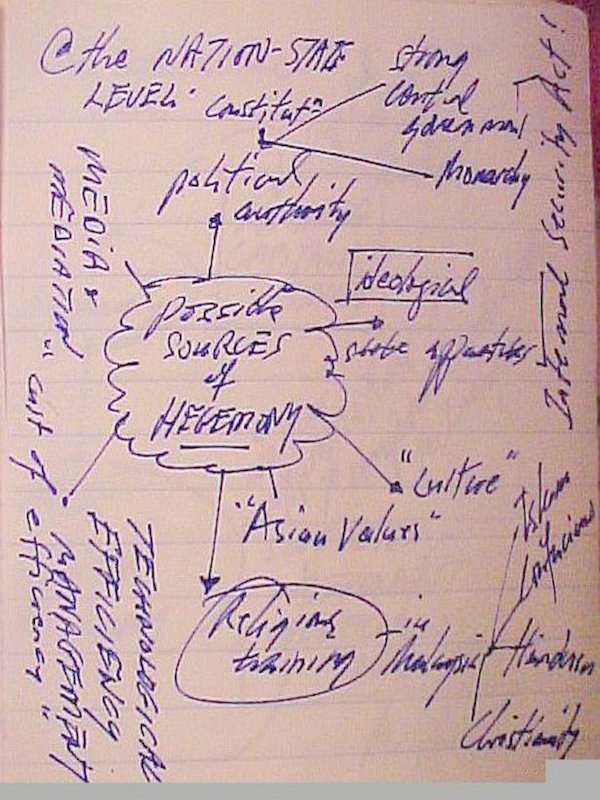 @ the NATION-STATE
LEVEL.
constitutn
strong
central
government
Monarchy
Internal Security Act!
political
authority
MEDIA &
MEDIATION
possible
SOURCES
of
HEGEMONY
ideological
state apparatus
"culture"
"Asian Values"
Religious
training
in
Malaysia
Islam
Confucious
Hinduism
Christianity
"cult of efficiency"
MANAGEMENT
EFFICIENCY
TECHNOLOGICAL